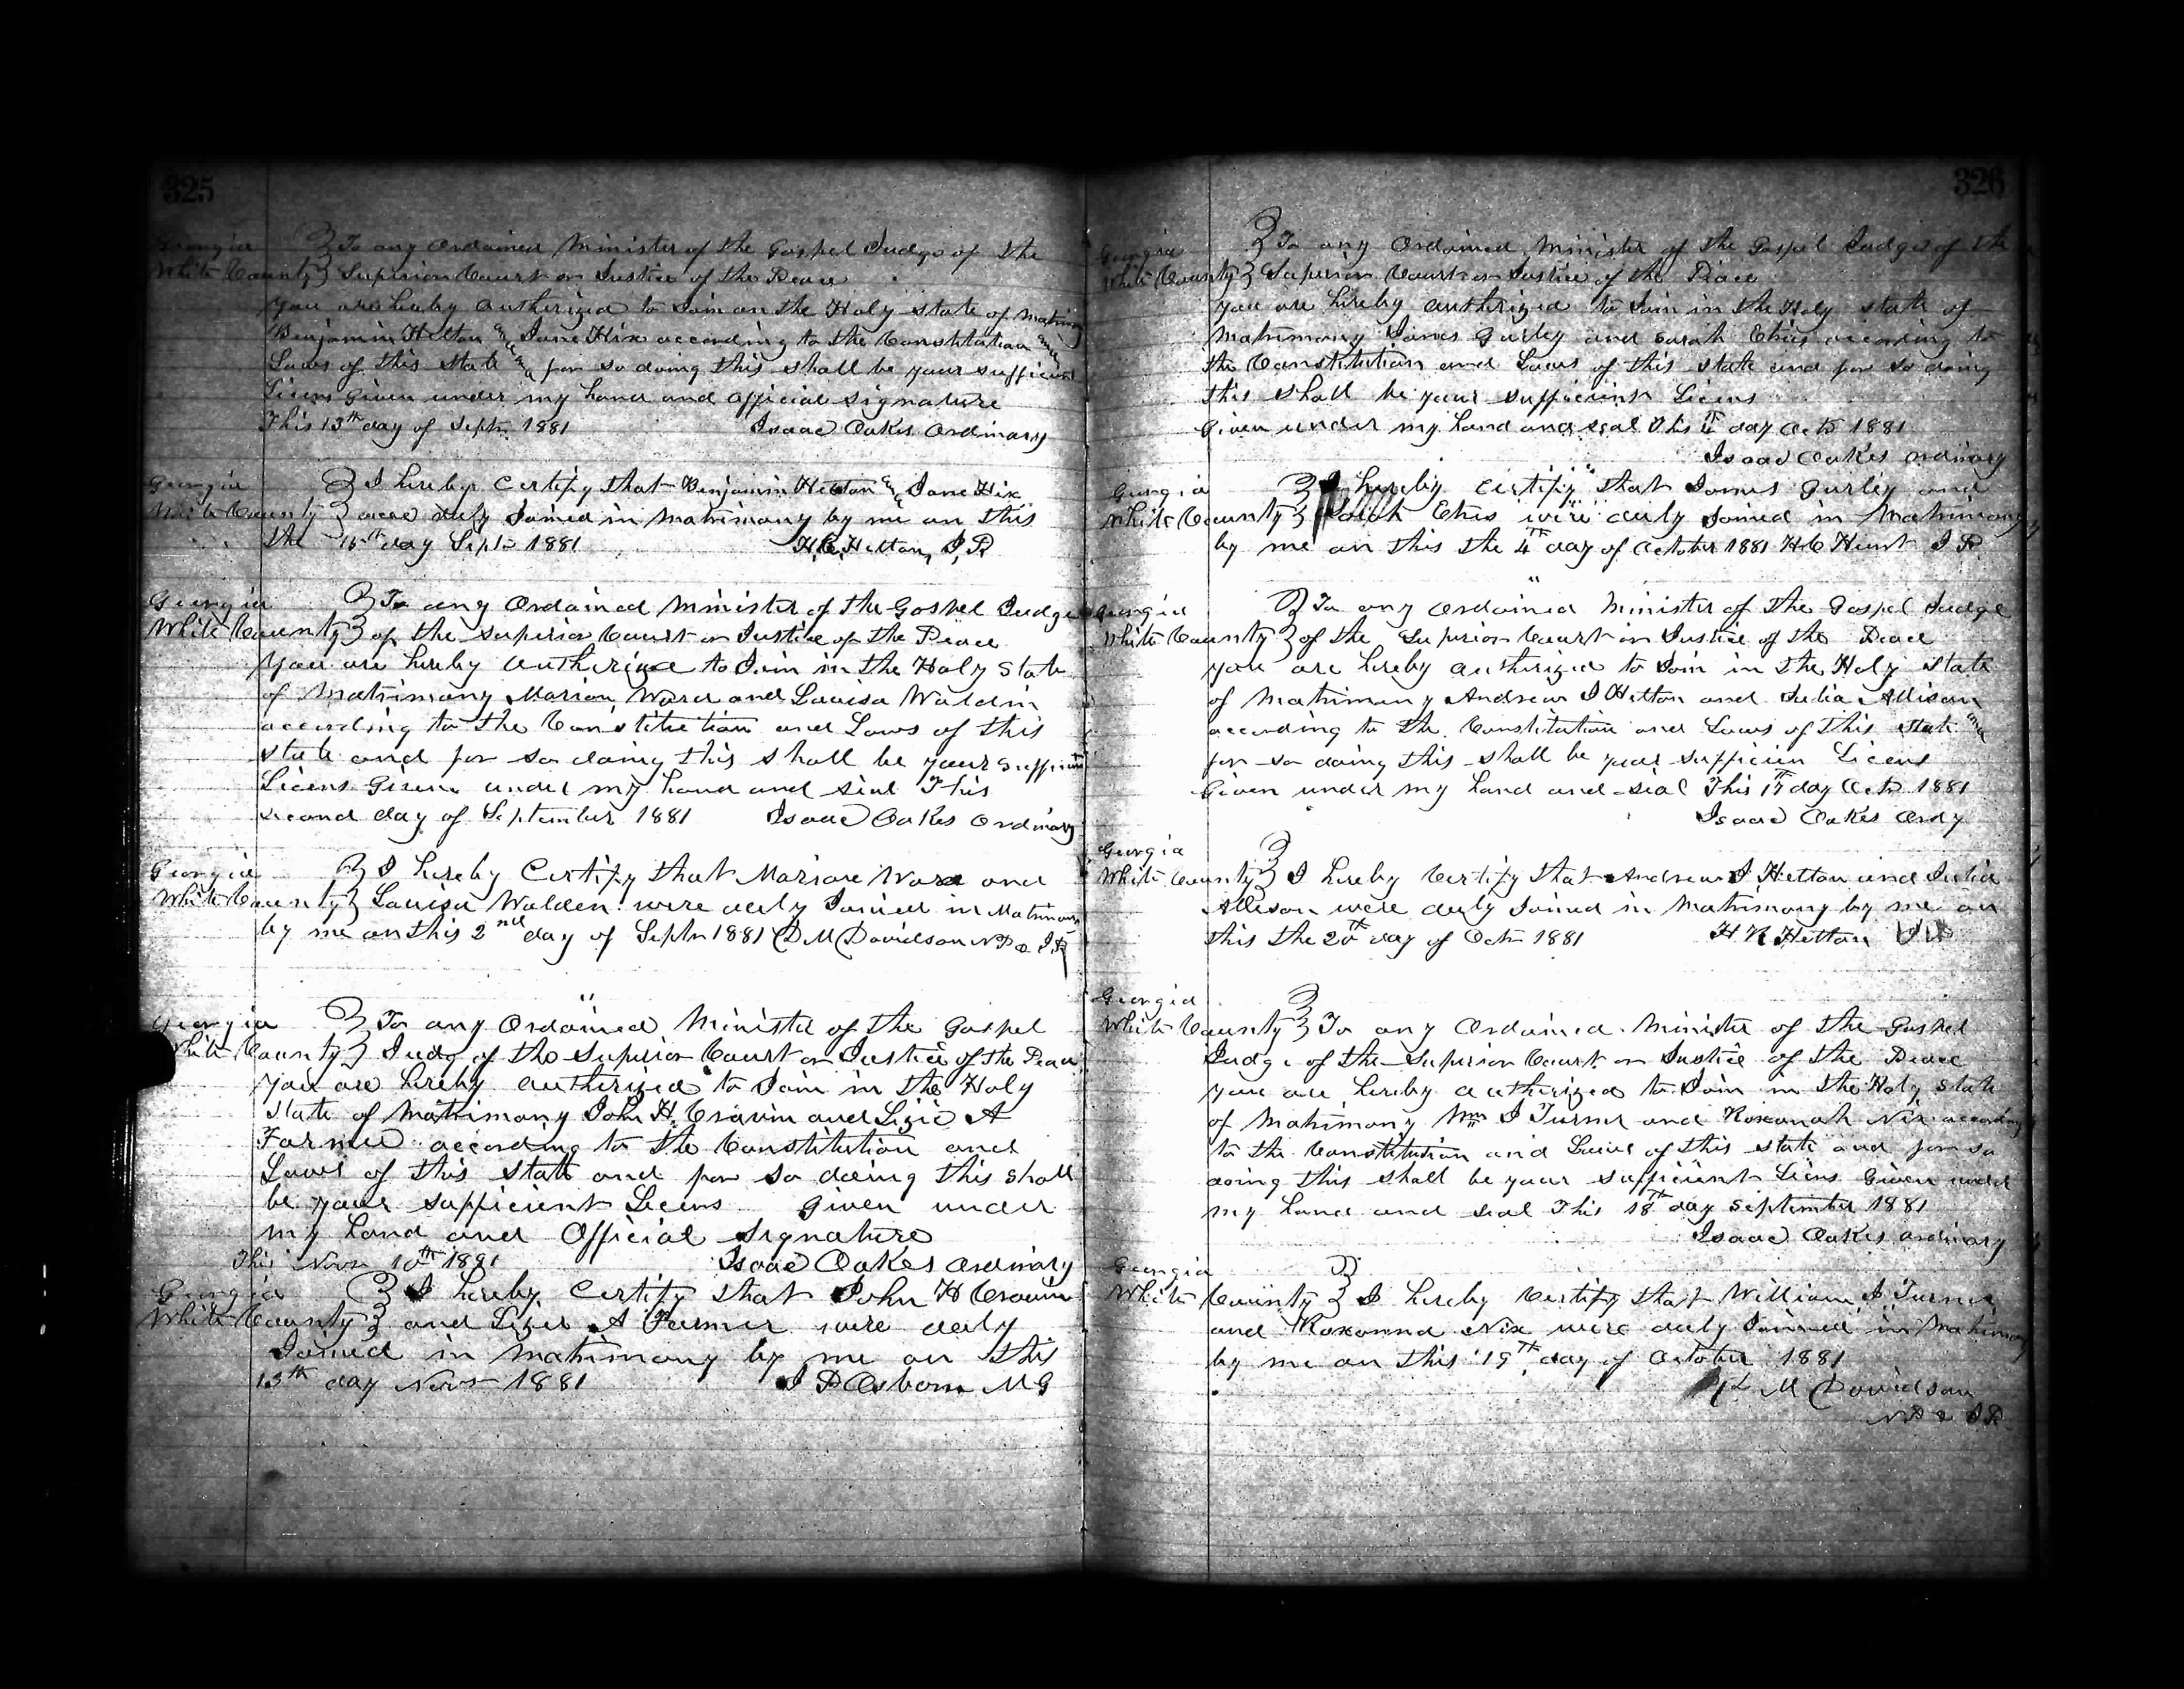 325
Georgia } To any Ordained Minister of the Gospel Judge of the
White County } Superior Court or Justice of the Peace
You are hereby Autherized to Join on the Holy state of
Benjamin Helton & Jane Hix according to the Constitution and
Laws of this State & for so doing this shall be your sufficient
Licens Given under my hand and official signature
This 13th day of Septr 1881 Isaac Oakes Ordinary
Georgia } I hereby Certify that Benjamin Helton & Jane Hix
White County } ware duly Joined in Matrimony by me on this
the 15th day Septr 1881 H. C. Helton, J, P
Georgia } To any Ordained Minister of the Gospel Judge
White County } of the Superior Court or Justice of the Peace
You are hereby Autherize to Join in the Holy State
of Matrimony Marion Ward and Louisa Waldin
according to the Constitution and Laws of this
state and for so doing this shall be your sufficient
Licens Given under my hand and seal This
second day of September 1881 Isaac Oakes Ordinary
Georgia } I hereby Certify that Marion Ward and
White County } Louisa Walden were duly Joined in Matrimony
by me on this 2nd day of Septr 1881 D M Davidson N P & J P
Georgia } To any Ordained Minister of the Gospel
White County } Judg of the Superior Court or Justice of the Peace
You are hereby autherized to Join in the Holy
State of Matrimony John H. Craven and Lizie A
Farmer according to the Constitution and
Laws of this State and for so doing this shall
be your sufficient Licens Given under
my hand and Official Signature
This Novr 10th 1881 Isaac Oakes Ordinary
Georgia } I hereby Certify that John H Craven
White County } and Lizer A Farmer were duly
Joined in Matrimony by me on this
13th day Novr 1881 J P Osborn M G
326
Georgia } To any Ordained Minister of the Gospel Judge of the
White County } Superior Court or Justice of the Peace
You are hereby Autherized to Join in the Holy state of
Matrimony James Gurley and Sarah according to
the Constitution and Laws of this state and for so doing
this shall be your sufficient Licens
Given under my hand and seal this day Octr 1881
Isaac Oakes ordinary
Georgia } I hereby Certify that James Gurley and
White County } Sarah were duly Joined in Matrimony
by me on this the 4th day of October 1881 H C Hunt J P
Georgia } To any Ordained Minister of the Gospel Judge
White County } of the Superior Court or Justice of the Peace
you are hereby autherized to Join in the Holy State
of Matrimony Andrew J Helton and Julia Allison
according to the Constitution and Laws of this state and
for so doing this shall be your sufficien Licens
Given under my hand and seal This 17th day Octr 1881
Isaac Oakes Ordy
Georgia
White County } I hereby Certify that Andrew J Helton and Julia
Allison were duly Joined in Matrimony by me on
this the 20th day of Octr 1881 H R Helton J P
Georgia
White County } To any Ordained Minister of the Gospel
Judge of the Superior Court or Justice of the Peace
you are hereby autherized to Join in the Holy State
of Matrimony Wm J Turner and Roxanah Nix according
to the Constitution and Laws of this state and for so
doing this shall be your sufficient Licens Given under
my hand and seal This 18th day September 1881
Isaac Oakes ordinary
Georgia
White County } I hereby Certify that William J Turner
and Roxanna Nix were duly Joined in Matrimony
by me on this 19th day of October 1881
M Davidson
N P & J P